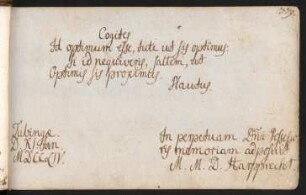 Cogites
Id optimum esse, tute uti sis optimus.
Si id nequiveris, saltem, ut
Optimis sis proximus.
Plautus.
Tubingæ
D.
MDCC
In perpetuam Dñi
ris memoriam adposuit
M. M. D. Harpprecht